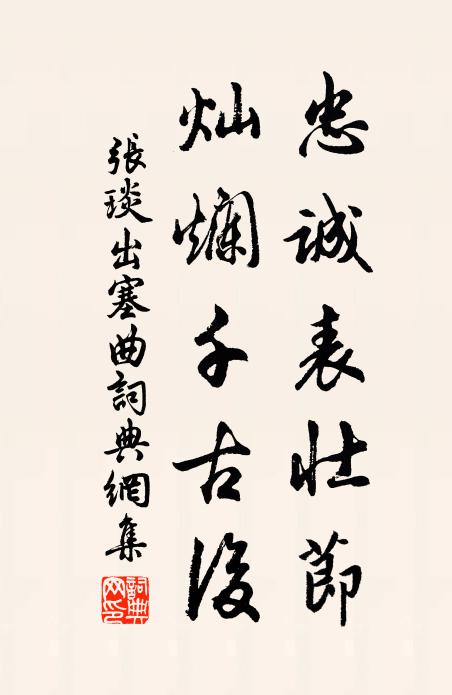 忠诚表壮節
灿爛千古後
張琰出塞曲詞典網集
詞典网印